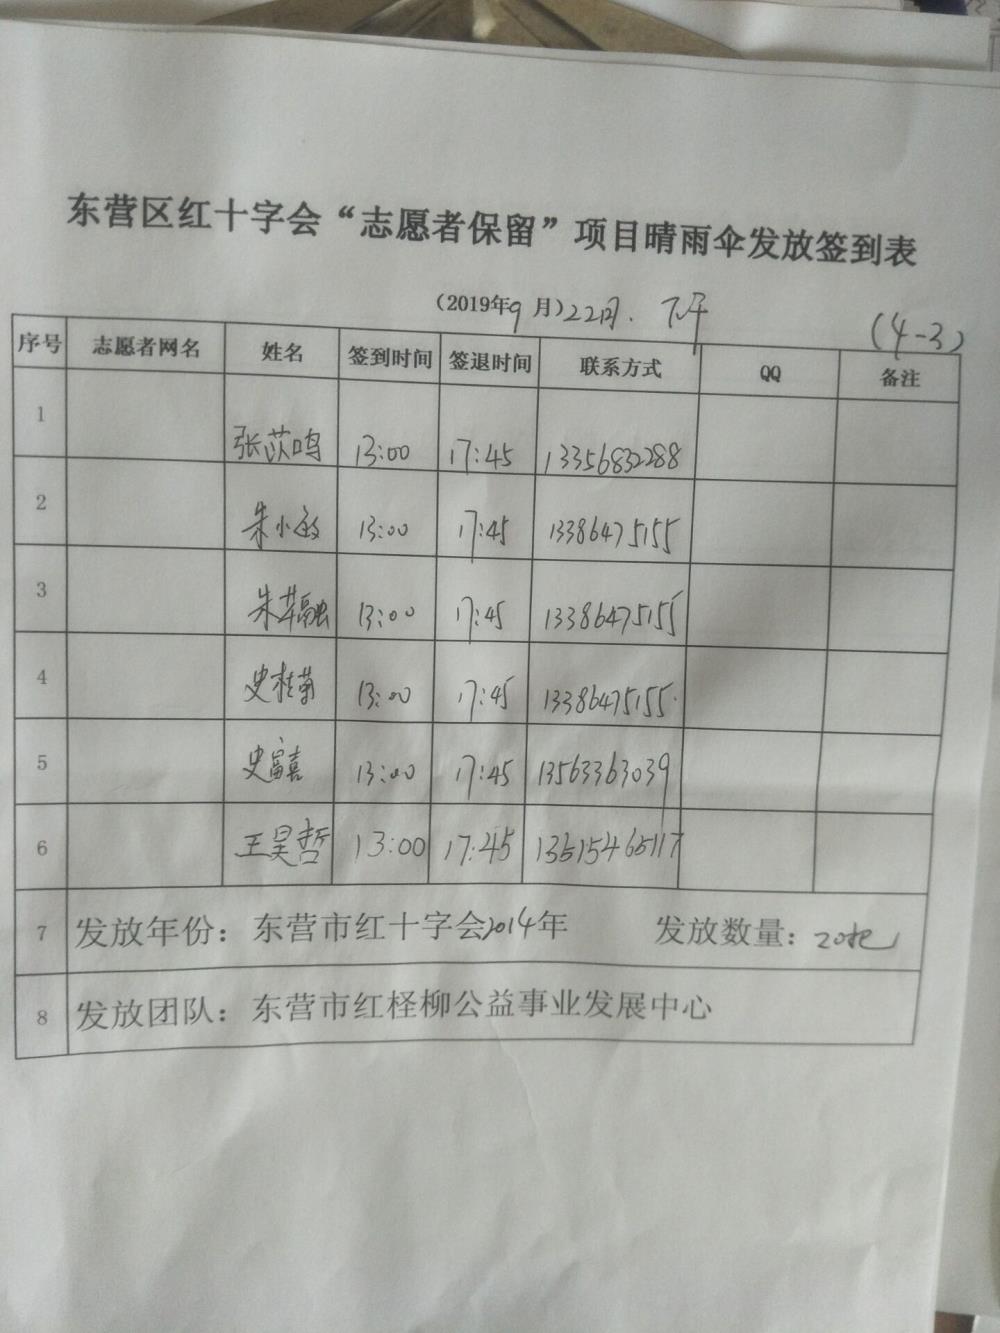 东营区红十字会“志愿者保留”项目晴雨伞发放签到表
（2019年9月）22日. 下午
(4-3)
序号 志愿者网名 姓名 签到时间 签退时间 联系方式 QQ 备注
1 张苡鸣 13:00 17:45 13356832288
2 朱小敏 13:00 17:45 13386475155
3 朱 融 13:00 17:45 13386475155
4 史桂菊 13:00 17:45 13386475155
5 史富喜 13:00 17:45 13563363039
6 王昊哲 13:00 17:45 13615465117
7 发放年份：东营市红十字会2014年 发放数量：20把
8 发放团队：东营市红柽柳公益事业发展中心